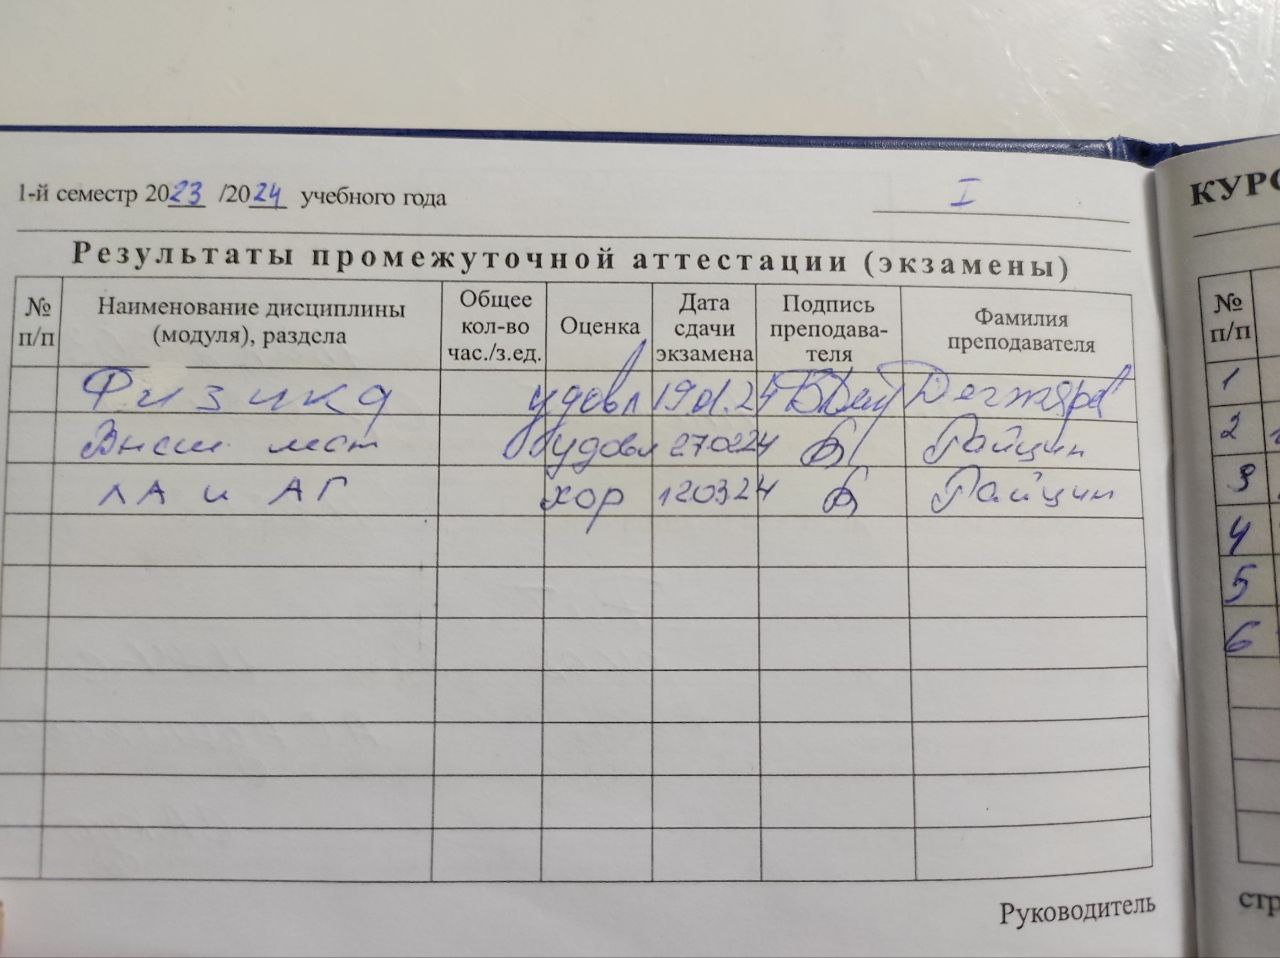 1-й семестр 2023 /2024 учебного года I
Результаты промежуточной аттестации (экзамены)
№ п/п Наименование дисциплины (модуля), раздела Общее кол-во час./з.ед. Оценка Дата сдачи экзамена Подпись преподава-теля Фамилия преподавателя
Физика удовл 19.01.24
Высш мат удовл 270224 Гайцин
ЛА и АГ хор 120324 Гайцин
Руководитель
КУРС
№ п/п
1
2
3
4
5
6
стр